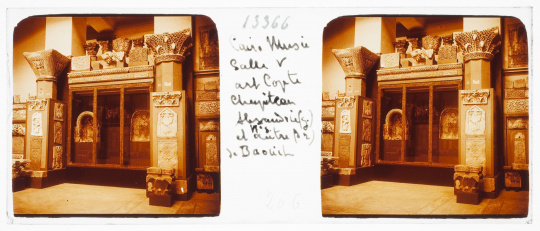 13366
Cairo Musée
Salle V
art Copte
Chapiteau
Alexandrie (g)
et autre (de)
de Baouit
206